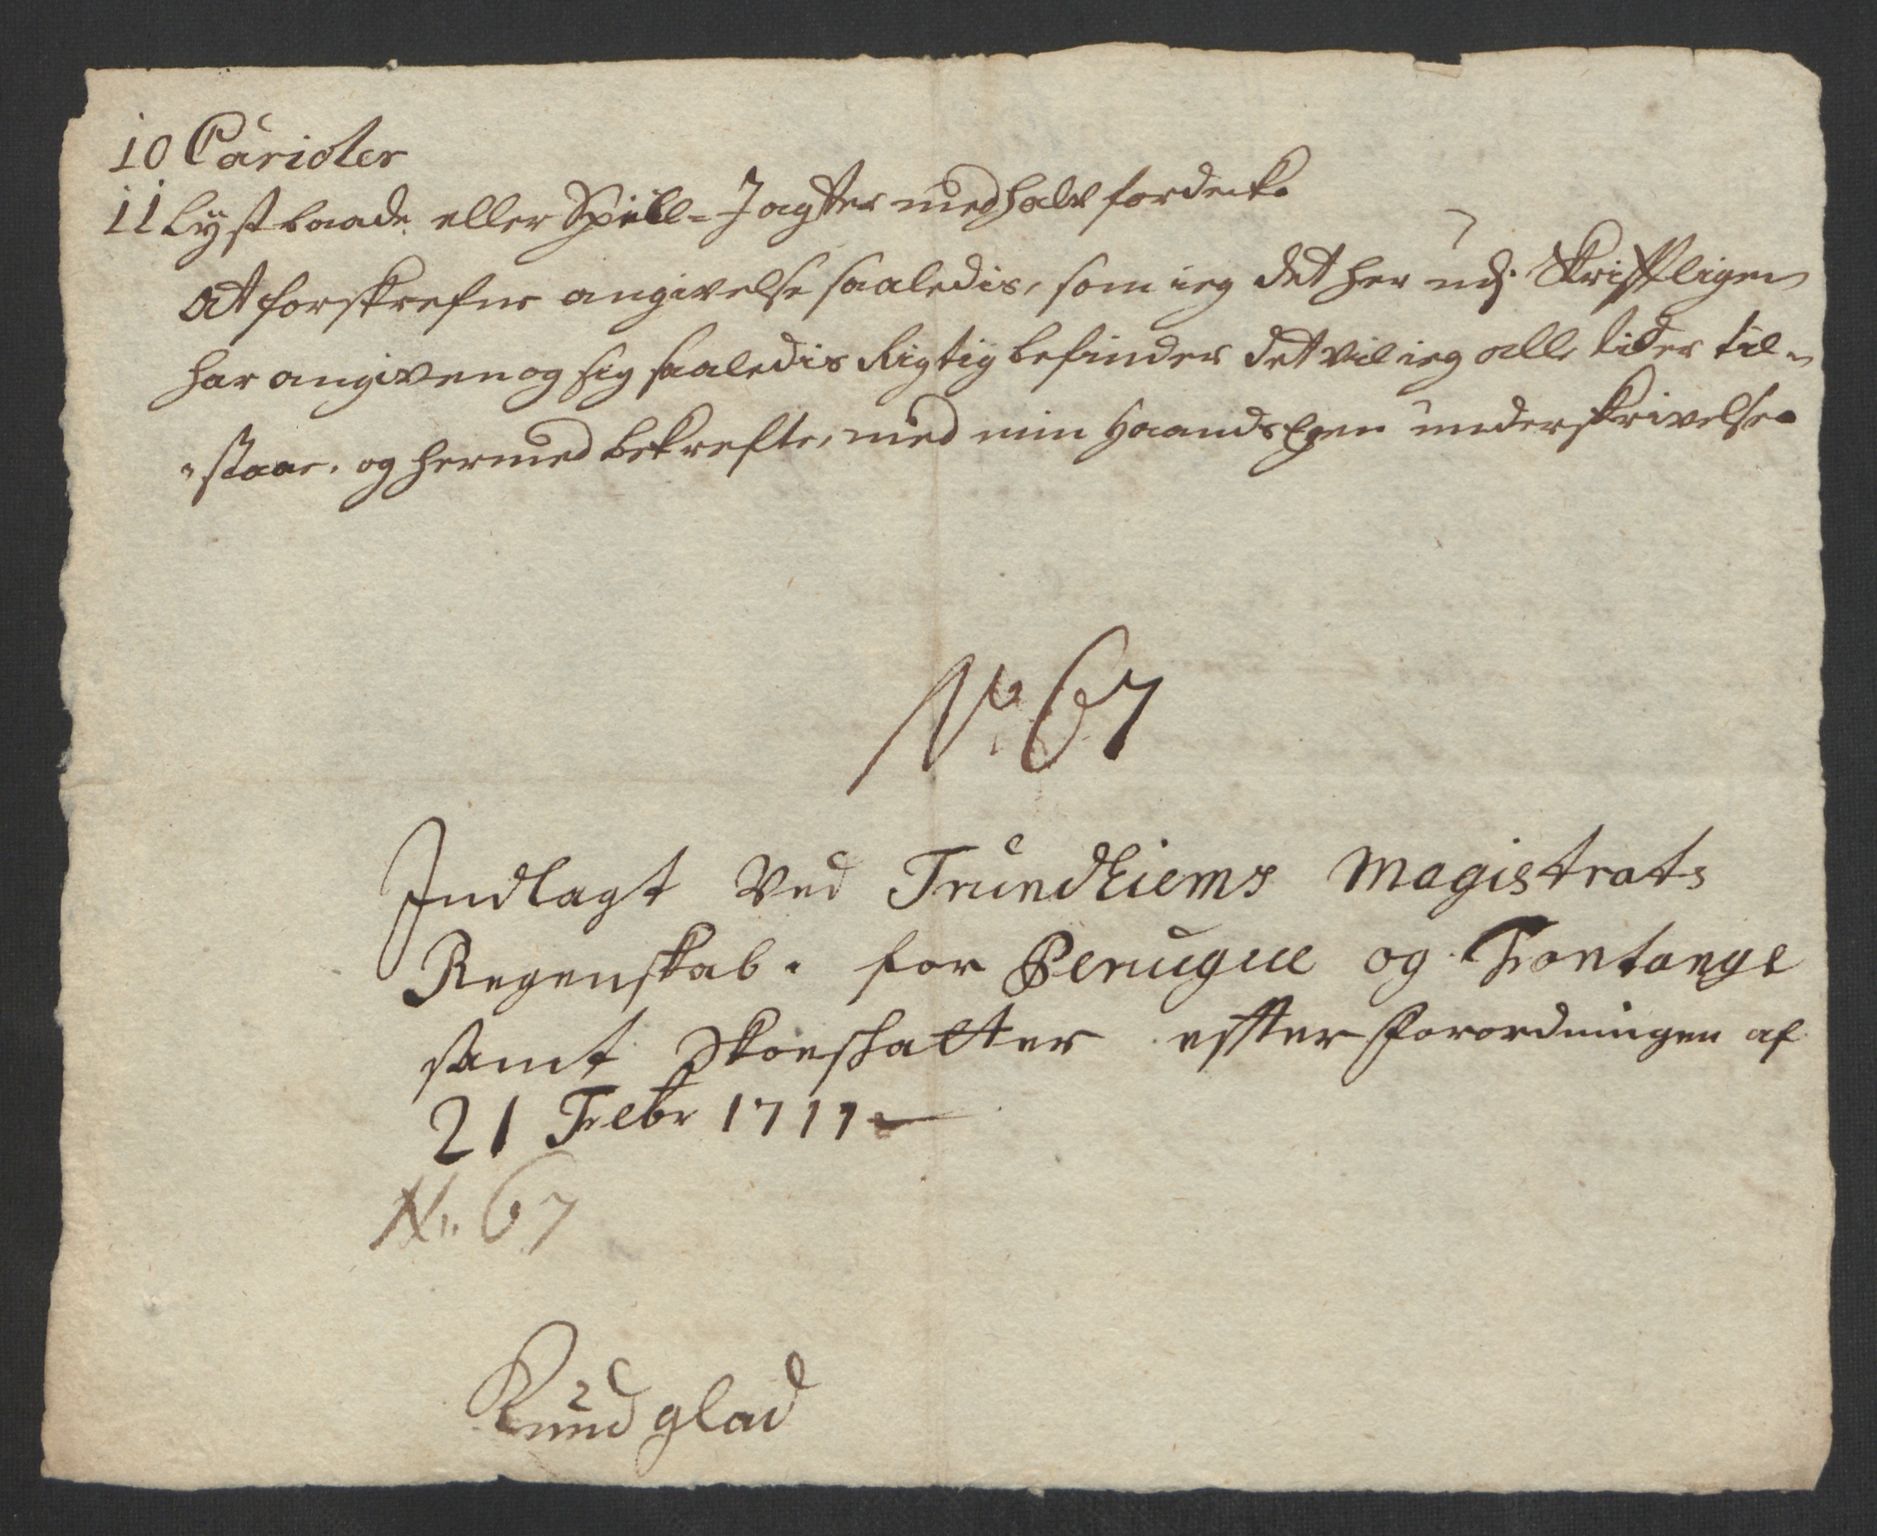 10 Carioler
11 Lystbaade eller Spill-Jagter med halv fordeck.
At forskrefne angivelse saaledis, som ieg det her udj Skrifftligen
har angiven og sig saaledis Rigtig befinder det vil ieg alle tider til-
-staae, og hermed bekrefte, med min Haands Egen underskrivelse.
No. 67
Indlagt Ved Trundhiems Magistrats
Regenskab. for Peruque og Fontange
samt Skoeshatter effter Forordningen af
21 Febr 1711
No. 67
Knud glad